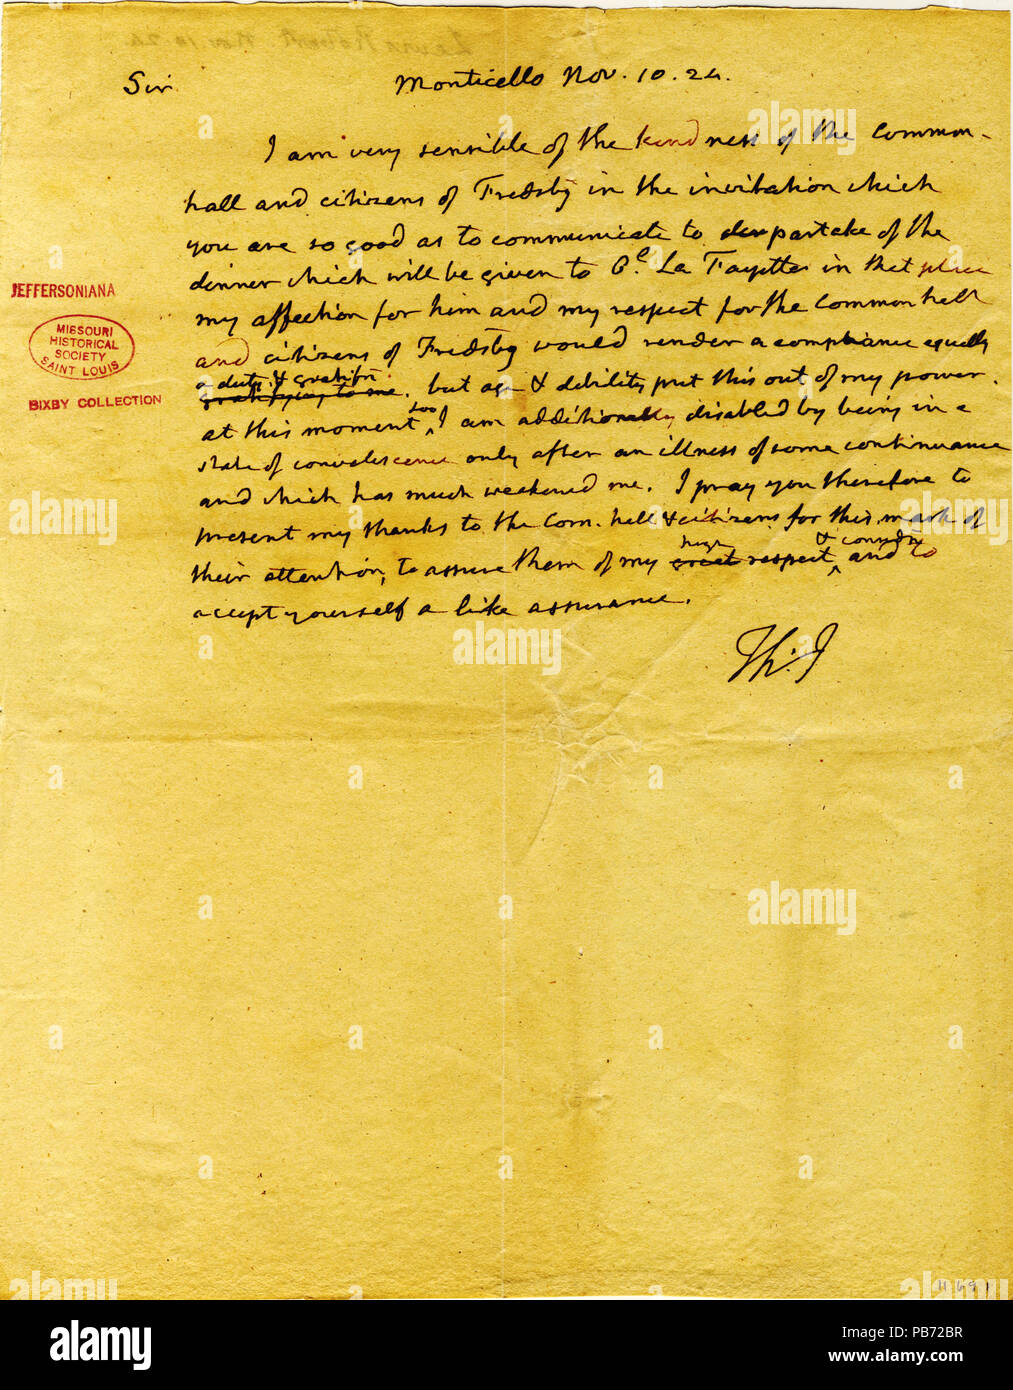 Sir Monticello Nov. 10. 24.
I am very sensible of the kindness of the Common-
hall and citizens of Fredsbg in the invitation which
you are so good as to communicate to partake of the
dinner which will be given to Gl La Fayette in that place
my affection for him and my respect for the Common hall
and citizens of Fredsbg would render a compliance equally
a duty & gratifcn
gratifying to me. but age & debility put this out of my power.
at this moment too I am additionally disabled by being in a
state of convalescence only after an illness of some continuance
and which has much weakened me. I pray you therefore to
present my thanks to the Com. hall & citizens for this mark of
high & considn
their attention, to assure them of my great respect, and to
accept yourself a like assurance.
Th:J
JEFFERSONIANA
MISSOURI
HISTORICAL
SOCIETY
SAINT LOUIS
BIXBY COLLECTION
alamy
Image ID: PB72BR
www.alamy.com